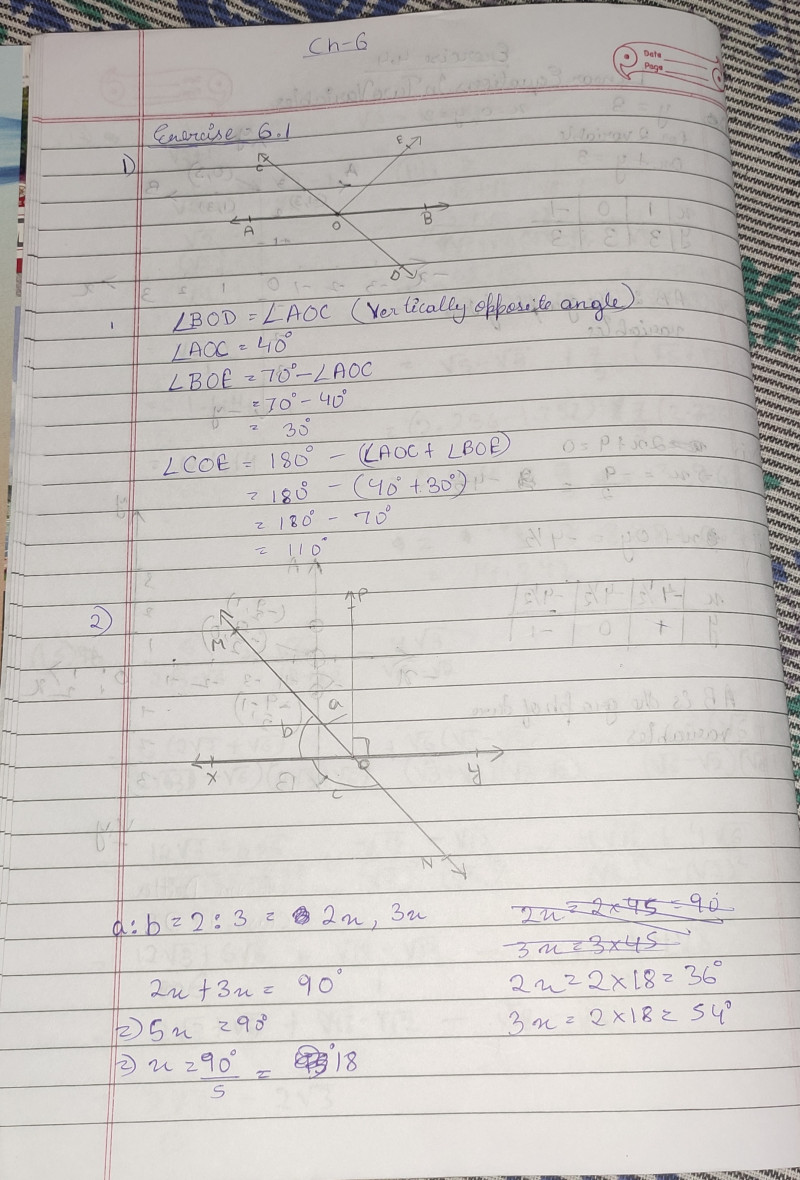 Ch-6
Date
Page
Exercise - 6.1
1)
C
E
A
O
B
D
∠BOD = ∠AOC (Vertically opposite angle)
∠AOC = 40°
∠BOE = 70° - ∠AOC
= 70° - 40°
= 30°
∠COE = 180° - (∠AOC + ∠BOE)
= 180° - (40° + 30°)
= 180° - 70°
= 110°
2)
P
M
a
b
X
O
y
c
N
a:b = 2:3 = 2x, 3x
2x + 3x = 90°
=) 5x = 90°
=) x = 90°/5 = 18
2x = 2×45 = 90
3x = 3×45
2x = 2×18 = 36°
3x = 2×18 = 54°